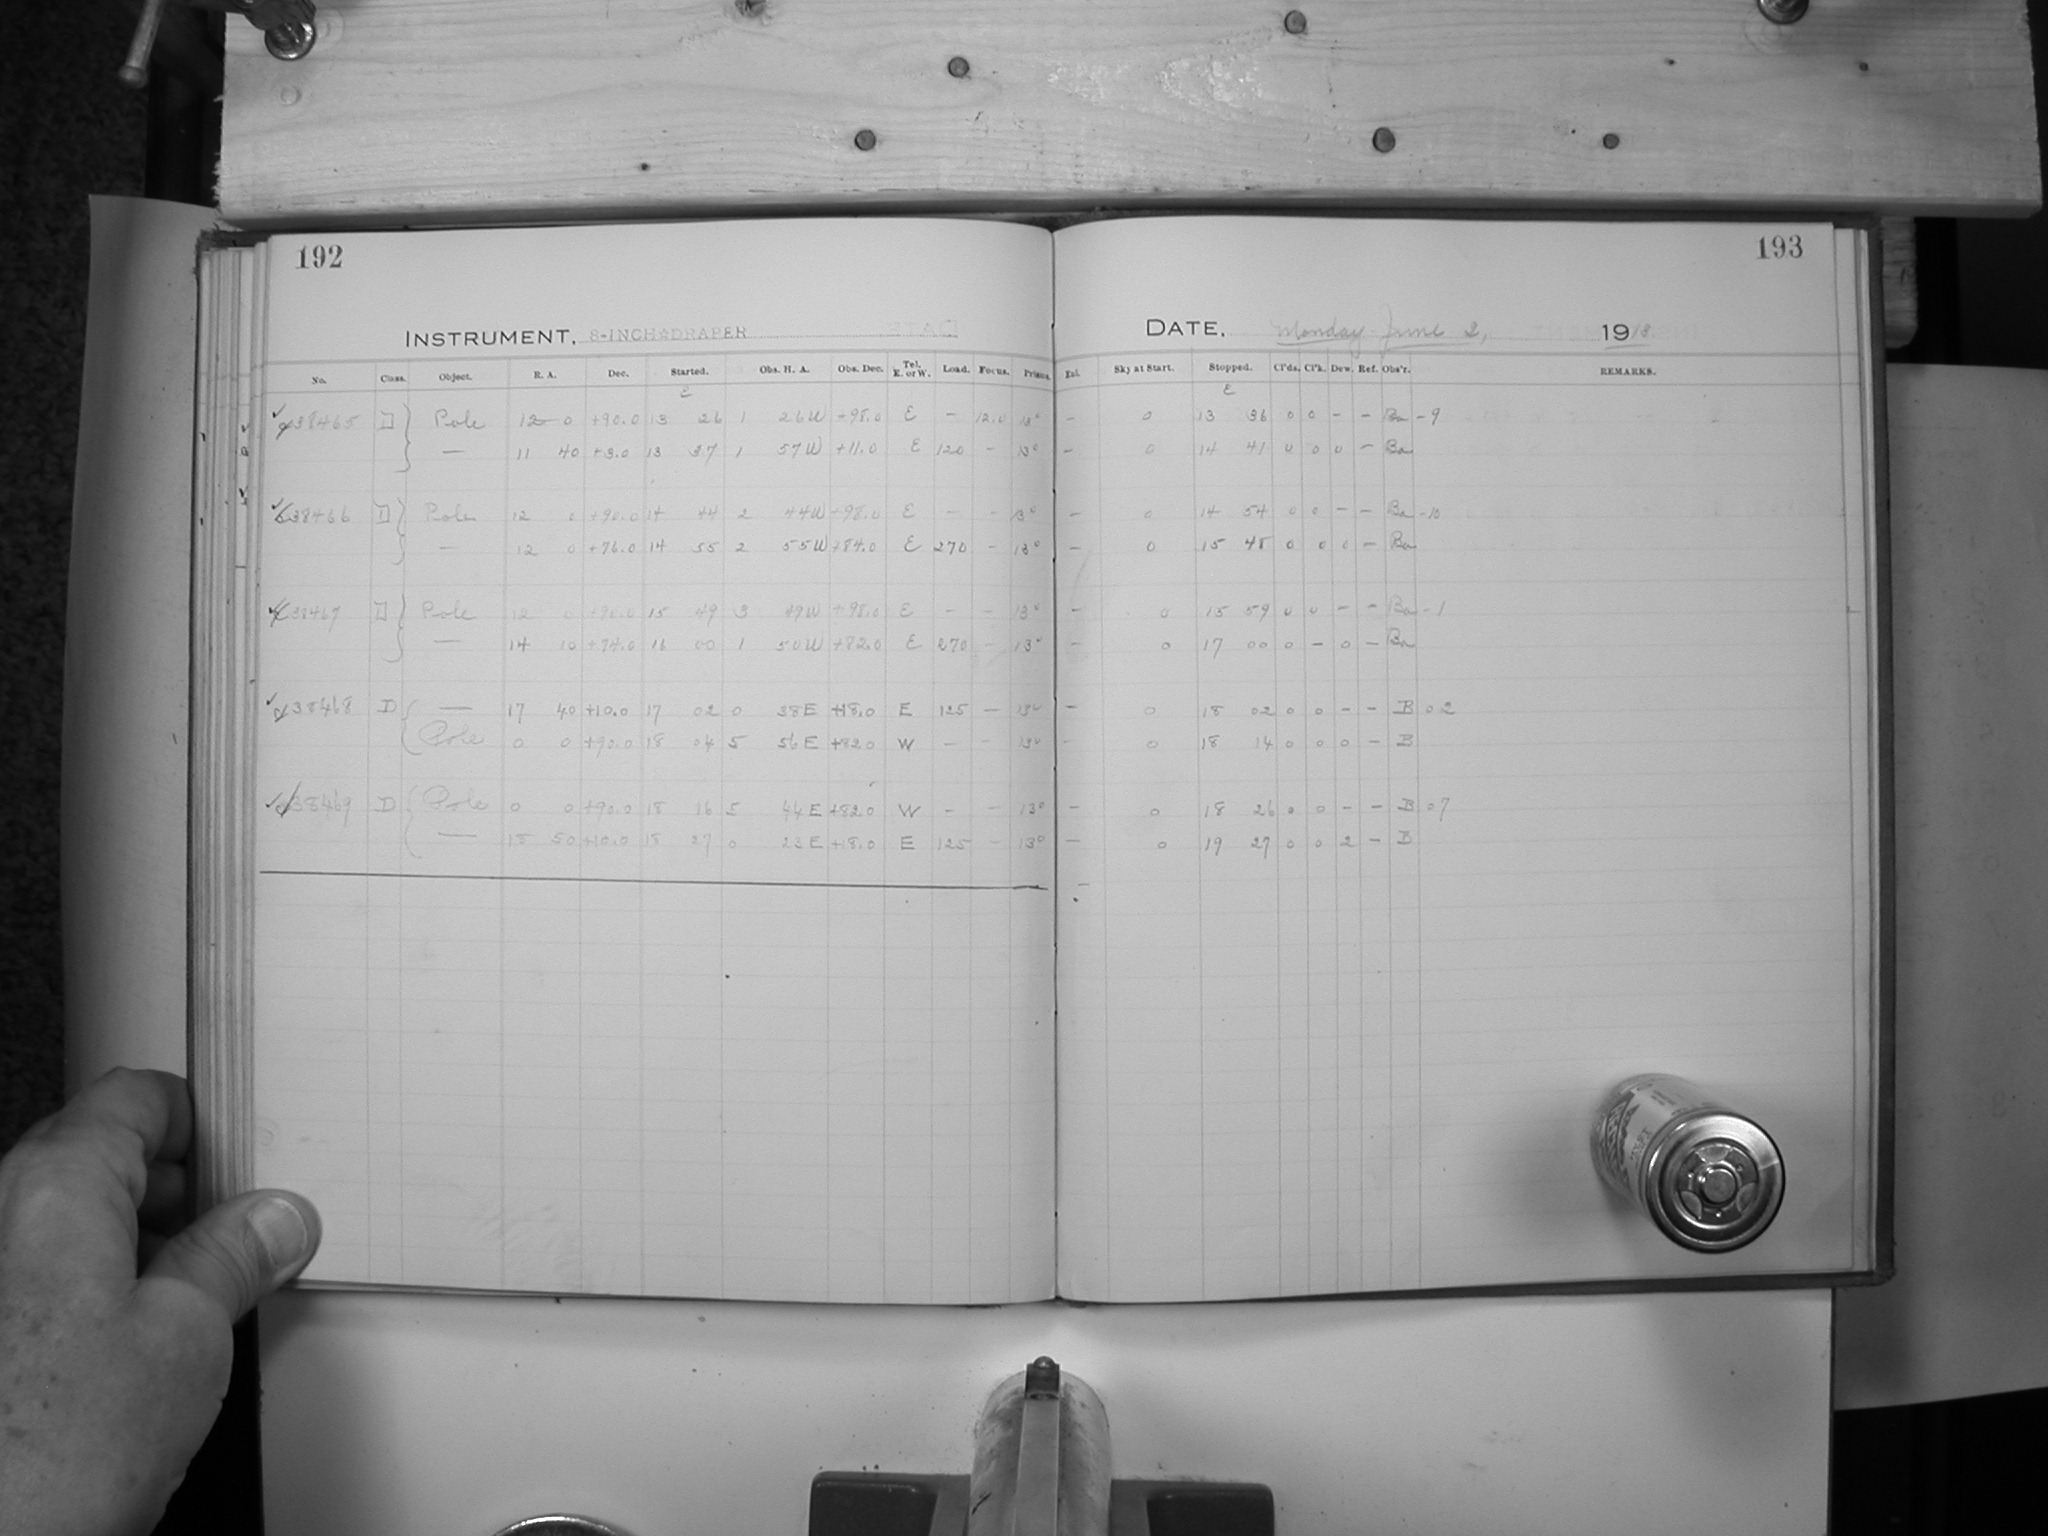 192
193
INSTRUMENT, 8-INCH DRAPER
DATE, Monday June 2, 1913
No. Class. Object. R. A. Dec. Started. Obs. H. A. Obs. Dec. Tel. E. or W. Load. Focus. Prisms. Exl. Sky at Start. Stopped. Cl'ds. Cl'k. Dew. Ref. Obs'r. REMARKS.
E E
38465 D Pole 12 0 +90.0 13 26 1 26W +98.0 E - 12.0 13° - 0 13 36 0 0 - - Ba -9
— 11 40 +3.0 13 37 1 57W +11.0 E 120 - 13° - 0 14 41 0 0 0 - Ba
38466 D Pole 12 0 +90.0 14 44 2 44W +98.0 E - - 13° - 0 14 54 0 0 - - Ba -10
— 12 0 +76.0 14 55 2 55W +84.0 E 270 - 13° - 0 15 48 0 0 0 - Ba
38467 D Pole 12 0 +90.0 15 49 3 49W +98.0 E - - 13° - 0 15 59 0 0 - - Ba -1
— 14 10 +74.0 16 00 1 50W +82.0 E 270 - 13° - 0 17 00 0 - 0 - Ba
38468 D — 17 40 +10.0 17 02 0 38E +18.0 E 125 - 13° - 0 18 02 0 0 - - B 02
Pole 0 0 +90.0 18 04 5 56E +82.0 W - - 13° - 0 18 14 0 0 0 - B
38469 D Pole 0 0 +90.0 18 16 5 44E +82.0 W - - 13° - 0 18 26 0 0 - - B 07
— 18 50 +10.0 18 27 0 23E +18.0 E 125 - 13° - 0 19 27 0 0 2 - B